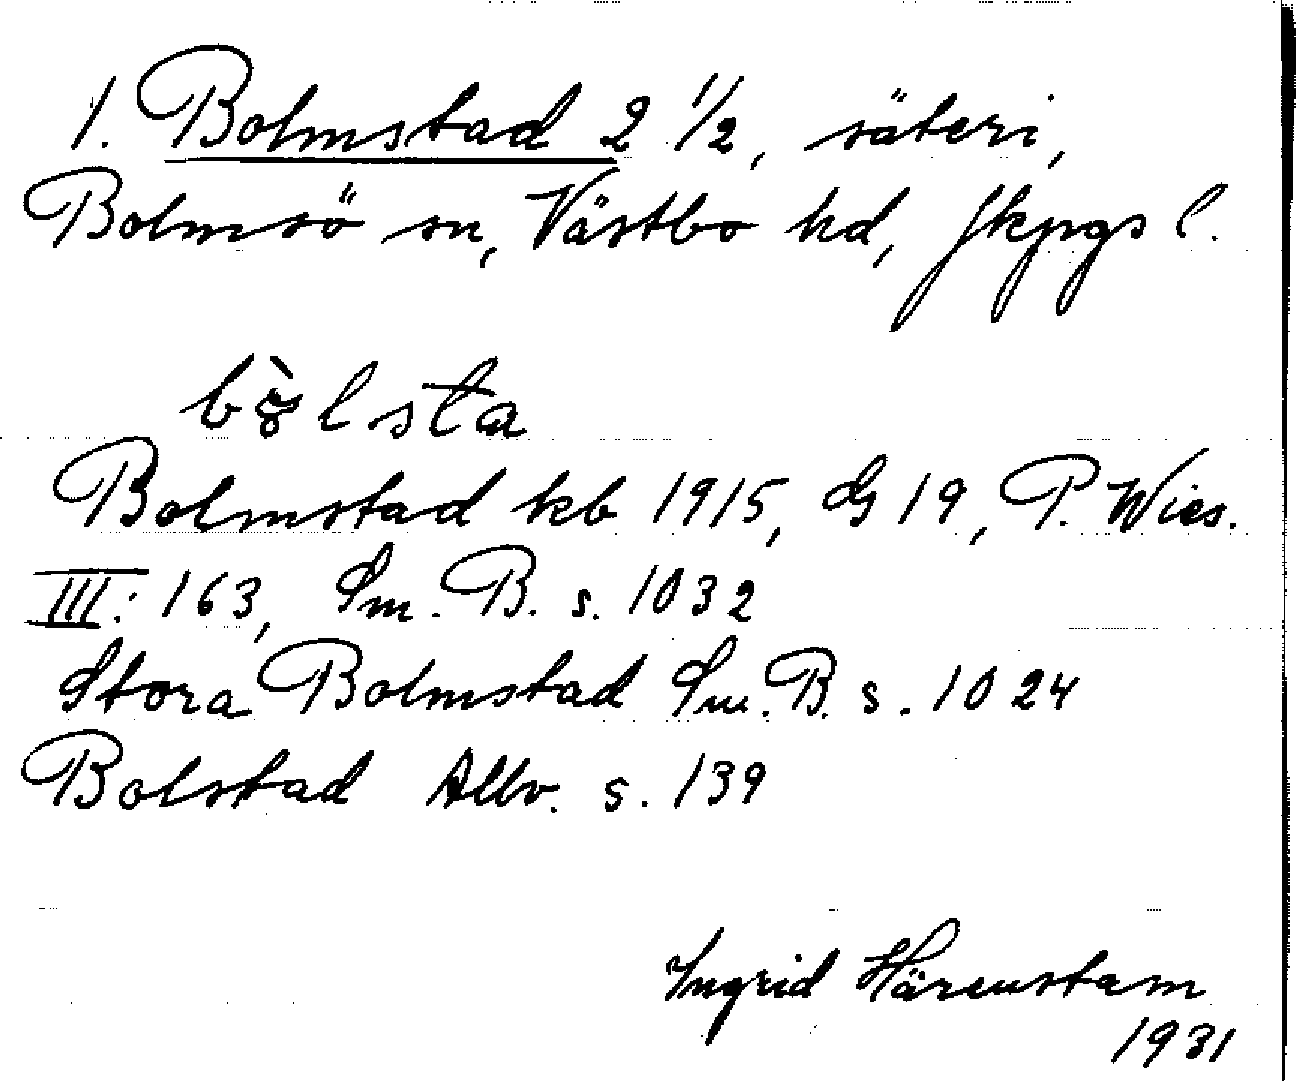 1. Bolmstad 2 1/2, säteri,
Bolmsö sn, Västbo hd, Jkpgs l.
bòlsta
Bolmstad kb 1915, G 19, P. Wies.
III: 163, Sm. B. s. 1032
Stora Bolmstad Sm. B. s. 1024
Bolstad Allv. s. 139
Ingrid Härenstam
1931